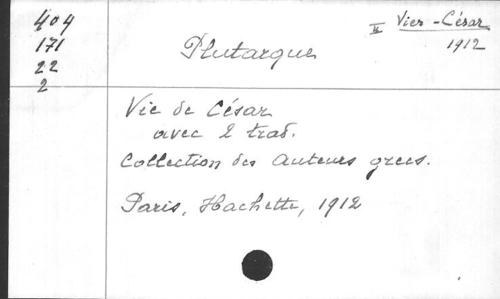 404
171
22
2
Plutarque
II Vies - César
1912
Vie de César
avec 2 trad.
Collection des Auteurs grecs.
Paris, Hachette, 1912